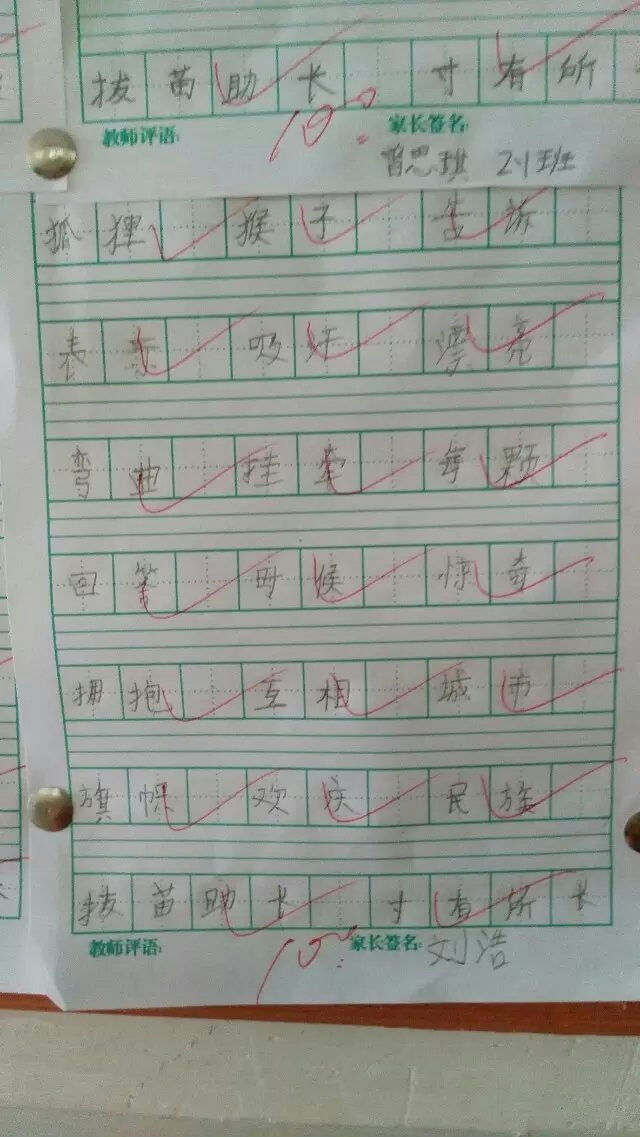 拔苗助长 寸有所
教师评语: 100 家长签名:
曾思琪 2小班
狐狸 猴子 告诉
表示 呼吸 漂亮
弯曲 挂牵 每颗
回答 时候 惊奇
拥抱 互相 城市
旗帜 欢庆 民族
拔苗助长 寸有所长
教师评语: 100 家长签名: 刘浩